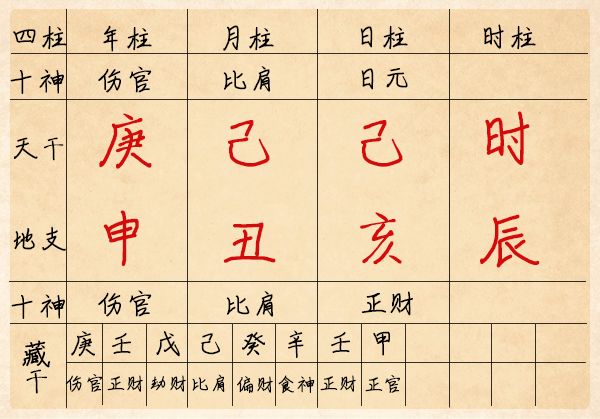 四柱 年柱 月柱 日柱 时柱
十神 伤官 比肩 日元
天干 庚 己 己 时
地支 申 丑 亥 辰
十神 伤官 比肩 正财
藏干 庚 壬 戊 己 癸 辛 壬 甲
伤官 正财 劫财 比肩 偏财 食神 正财 正官